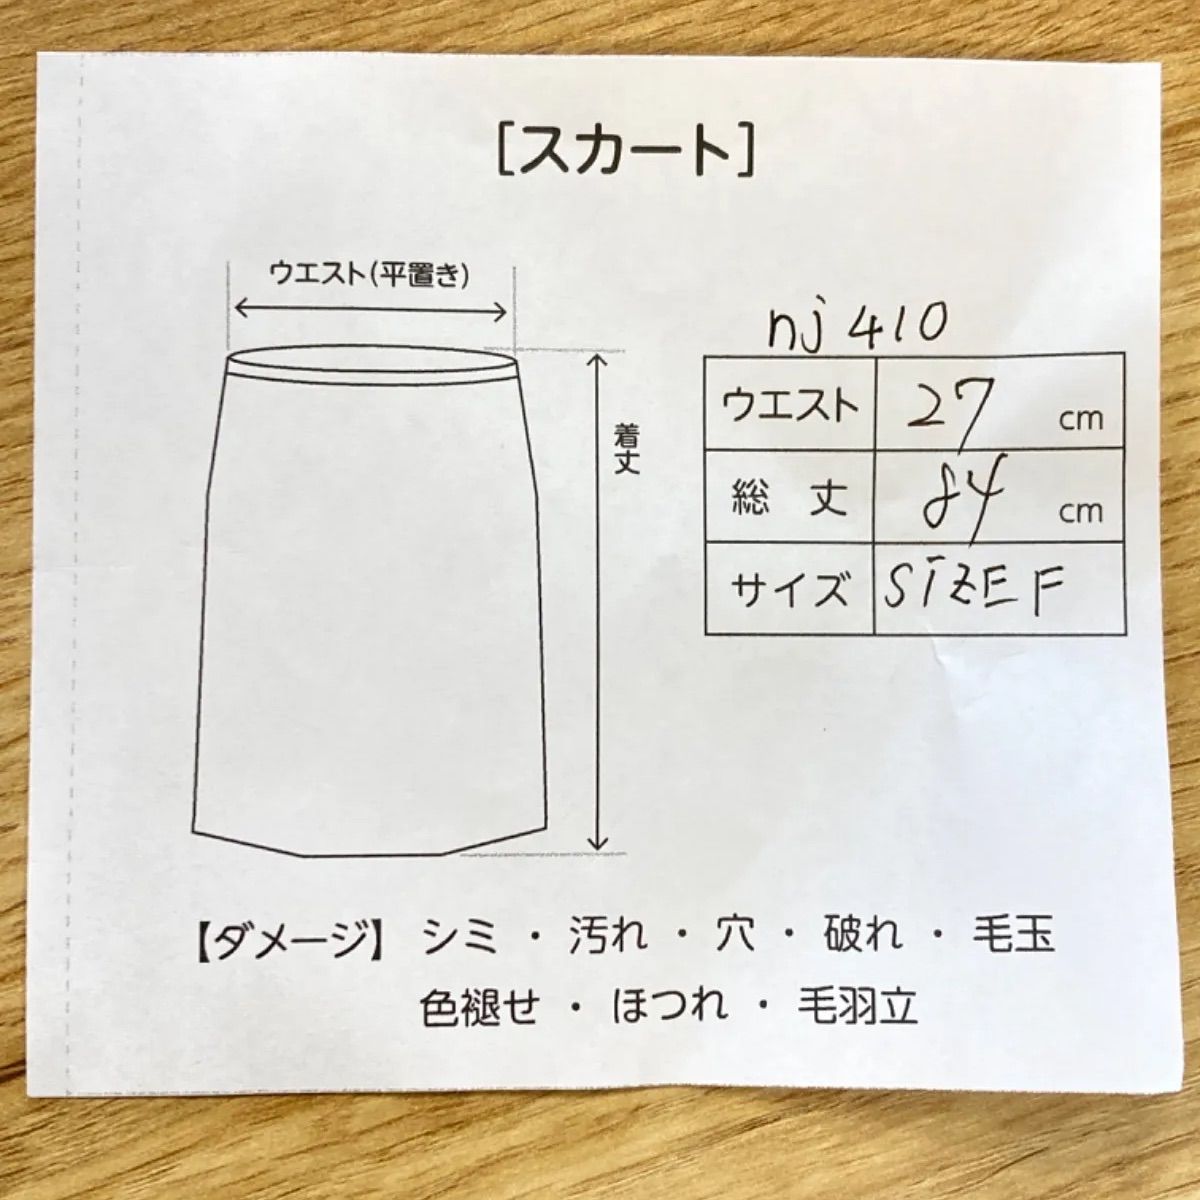 [スカート]
ウエスト(平置き)
着丈
nj 410
ウエスト 27 cm
総 丈 84 cm
サイズ SIZE F
【ダメージ】 シミ ・ 汚れ ・ 穴 ・ 破れ ・ 毛玉
色褪せ ・ ほつれ ・ 毛羽立